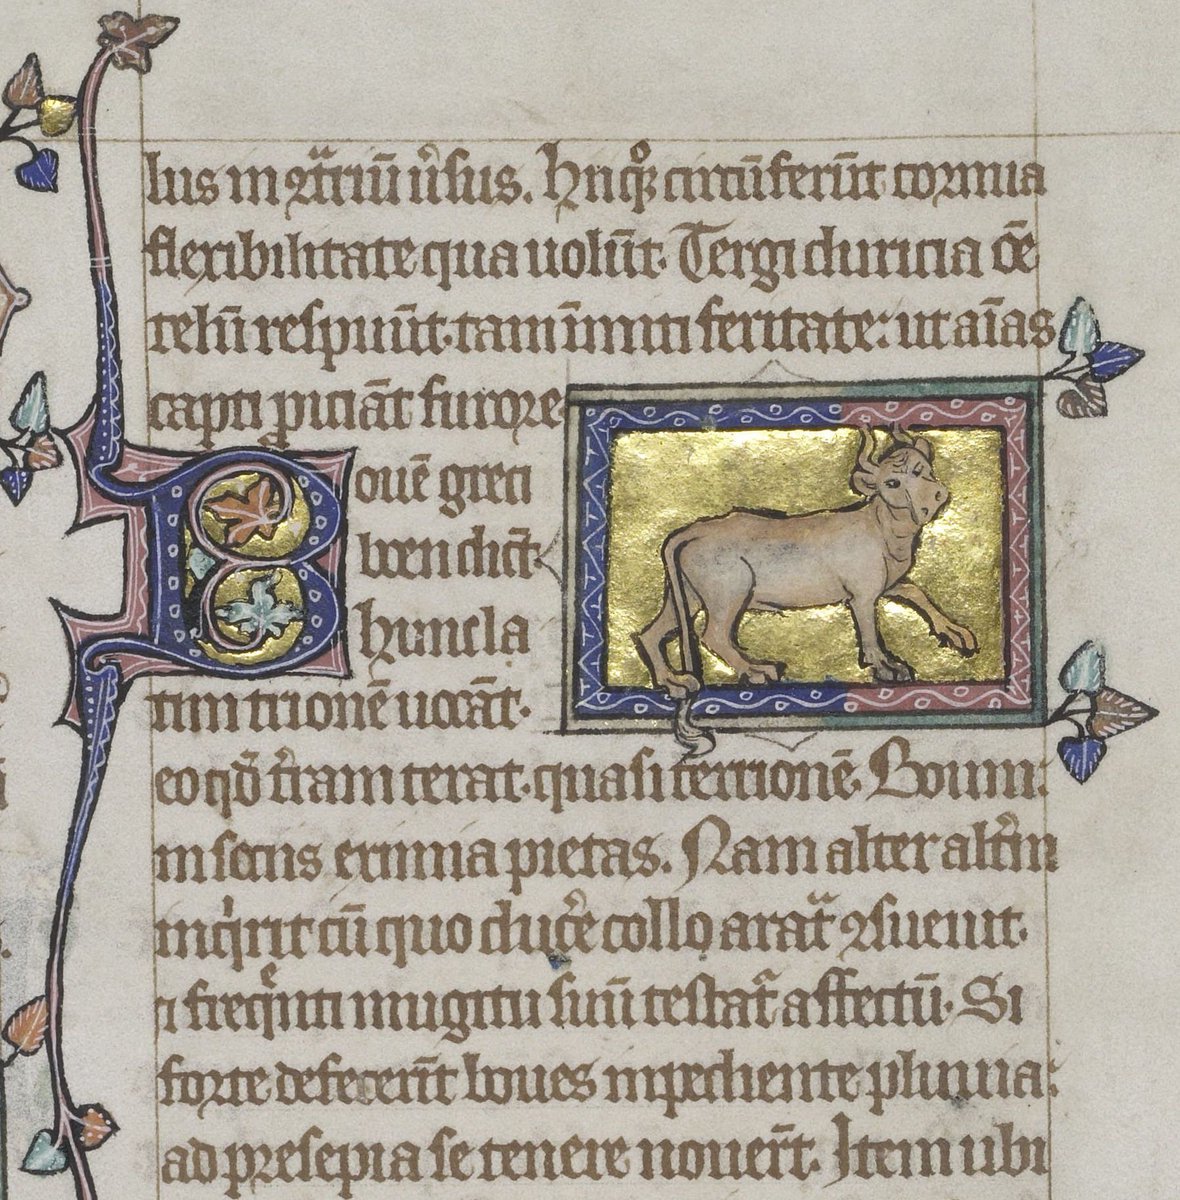 lus in ꝯtͣriū ūsus. hiicqꝫ circūferūt cornua
flexibilitate qua uolūt. Tergi duricia oē
telū respuūt. tam īmiti feritate: ut aīas
capti ꝓiciāt furore.
Bouē greci
boen dicūt.
hunc la
tini trionē uocāt.
eo qđ t̄ram terat. quasi terrionē. Boum.
in sociis eximia pietas. Nam alter altūm
inqͥrit cū quo duc̄e collo aratͣ ꝯsueuit.
⁊ freqͥnti mugitu suū testatͬ affectū. Si
forte defecerīt boues inpediente pluuia:
ad presepia se tenere nouer̄t. Item ubi